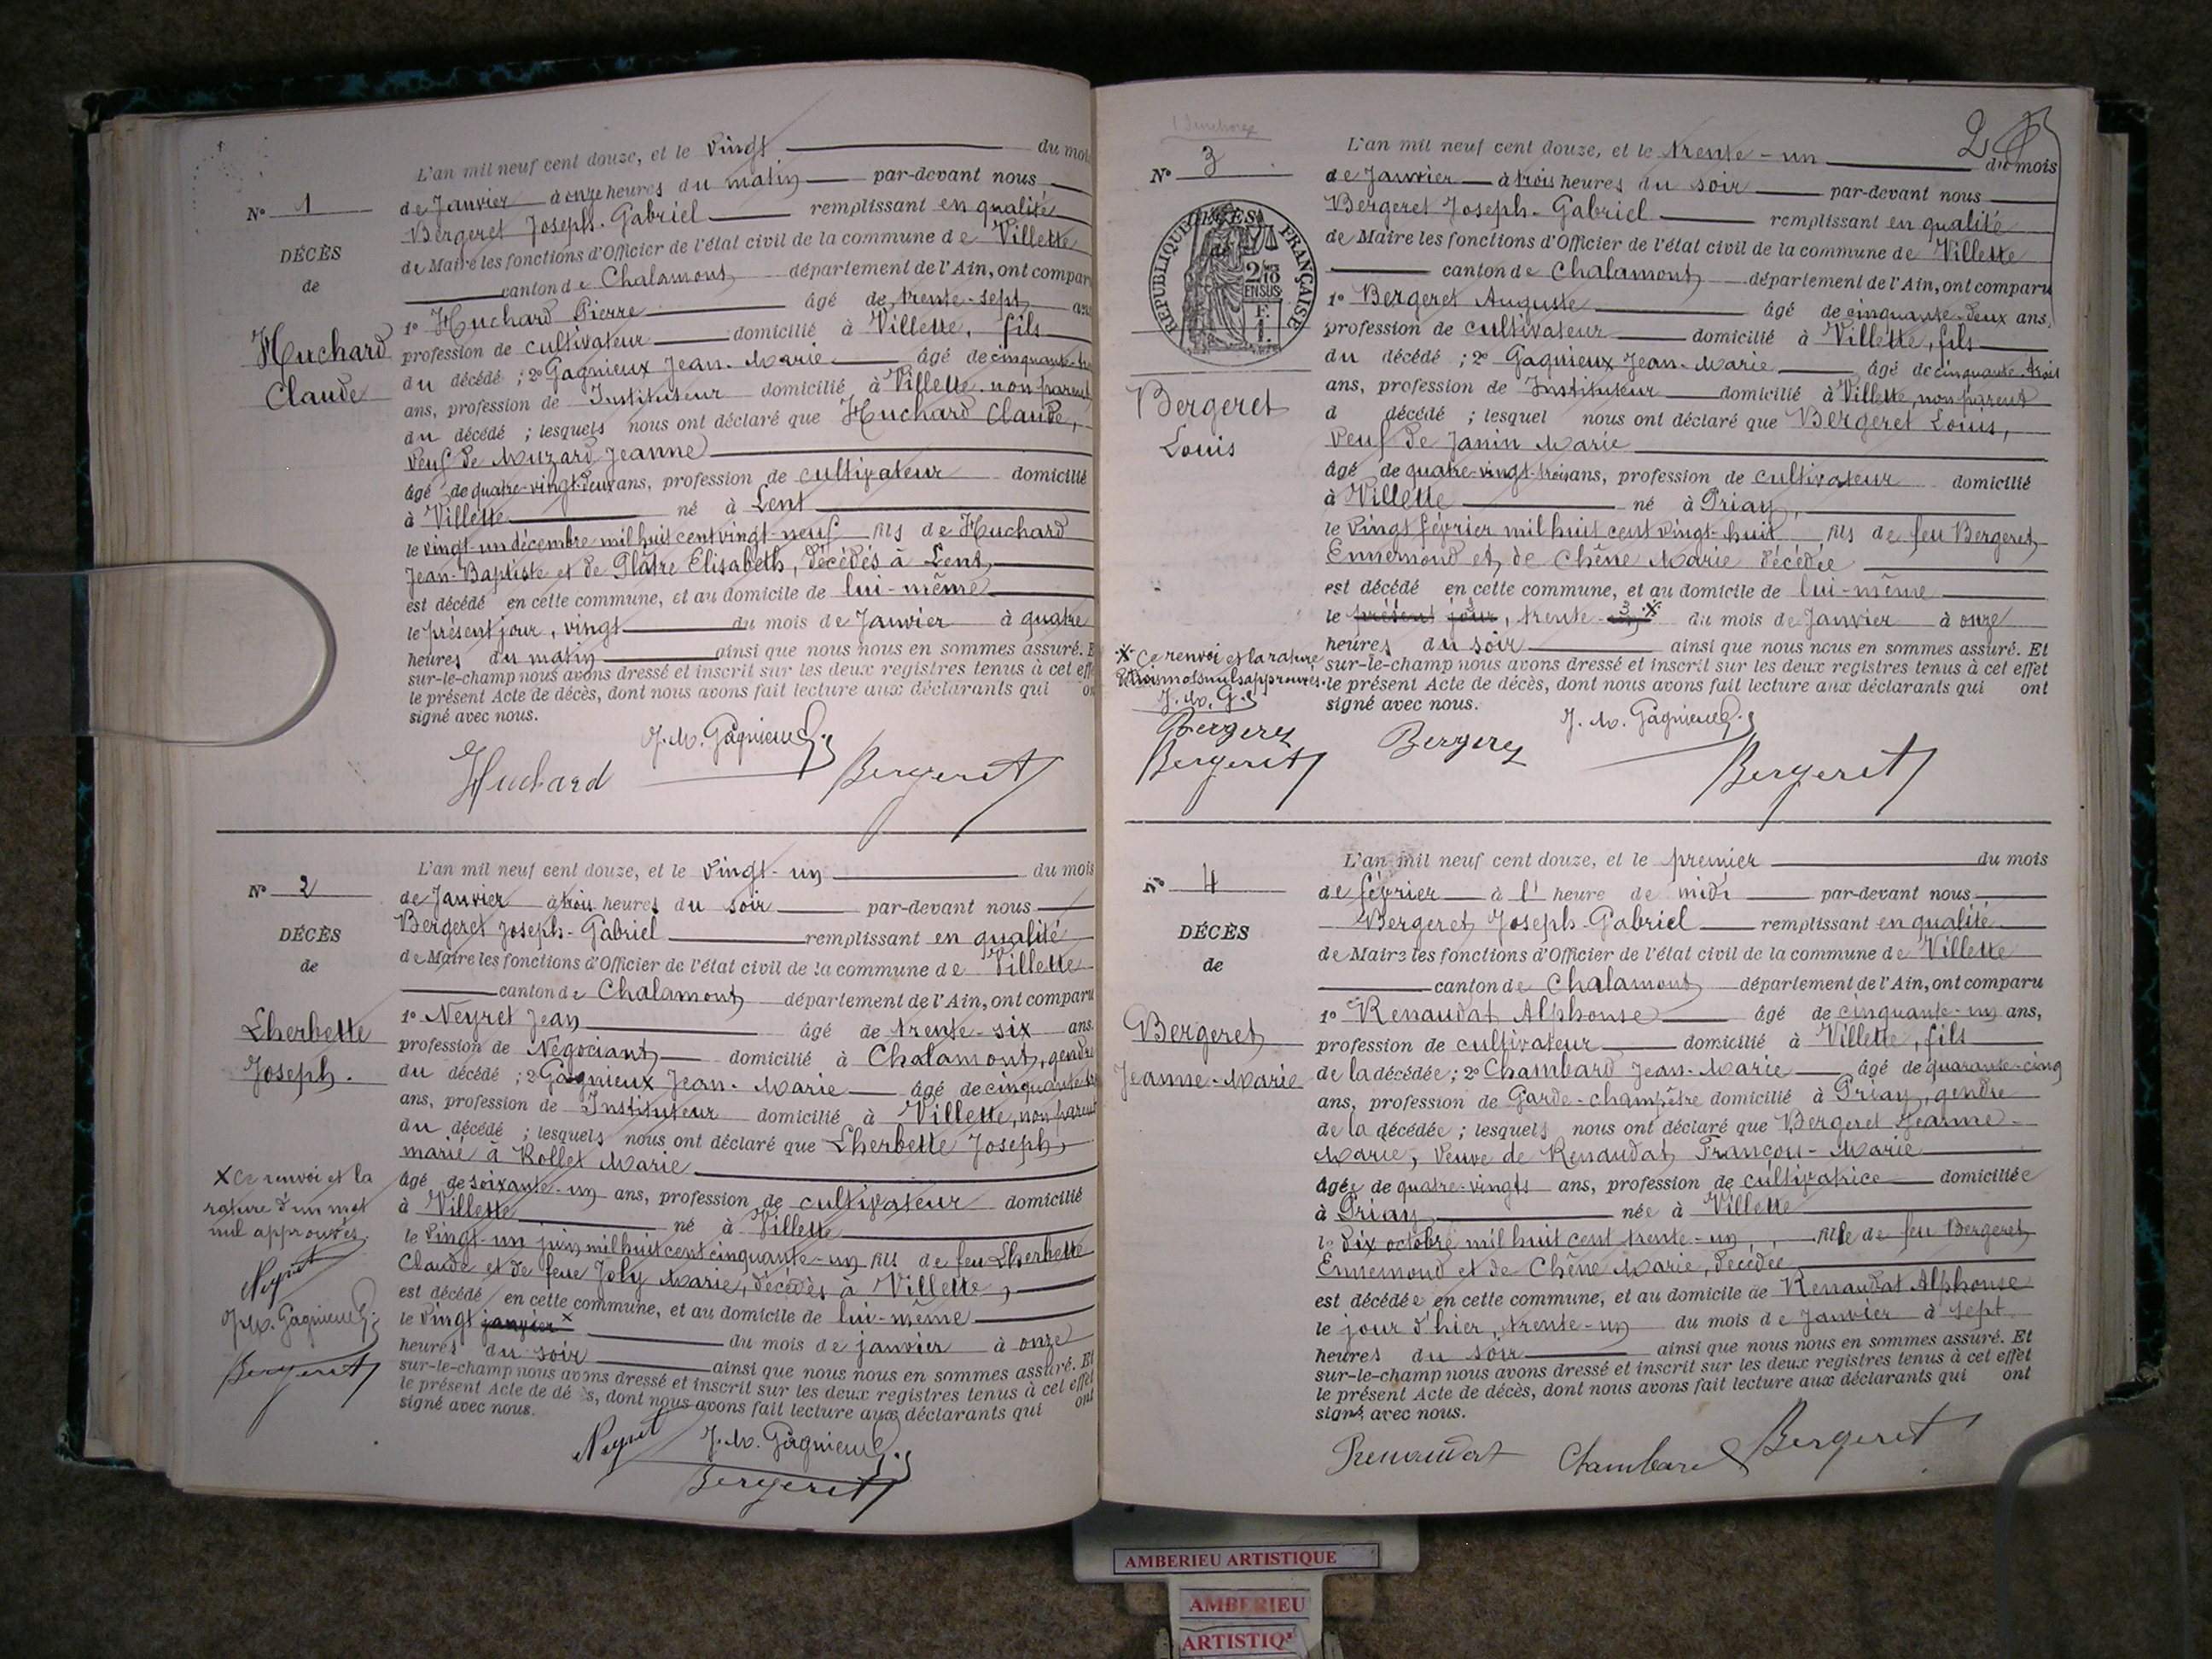 L'an mil neuf cent douze, et le vingt du mois
N° 1
de Janvier à onze heures du matin par-devant nous
Bergeret Joseph-Gabriel remplissant en qualité
DÉCÈS
de Maire les fonctions d'Officier de l'état civil de la commune de Villette
de
canton de Chalamont département de l'Ain, ont comparu
1° Huchard Pierre âgé de trente-sept ans
Huchard
Claude
profession de cultivateur domicilié à Villette, fils
du décédé ; 2° Gagnieux Jean-Marie âgé de cinquante-
ans, profession de Instituteur domicilié à Villette, non parent
du décédé ; lesquels nous ont déclaré que Huchard Claude,
veuf de Muzard Jeanne
âgé de quatre-vingt-deux ans, profession de cultivateur domicilié
à Villette né à Lent
le vingt-un décembre mil huit cent vingt-neuf fils de Huchard
Jean-Baptiste et de Plâtre Elisabeth, décédés à Lent,
est décédé en cette commune, et au domicile de lui-même
le présent jour, vingt du mois de Janvier à quatre
heures du matin ainsi que nous nous en sommes assuré. E
sur-le-champ nous avons dressé et inscrit sur les deux registres tenus à cet eff
le présent Acte de décès, dont nous avons fait lecture aux déclarants qui on
signé avec nous.
J. M. Gagnieux
Huchard
Bergeret
L'an mil neuf cent douze, et le vingt-un du mois
N° 2
de Janvier à trois heures du soir par-devant nous
Bergeret Joseph-Gabriel remplissant en qualité
DÉCÈS
de Maire les fonctions d'Officier de l'état civil de la commune de Villette
de
canton de Chalamont département de l'Ain, ont comparu
Lherbette
Joseph.
1° Neyret Jean âgé de trente-six ans.
profession de Négociant domicilié à Chalamont, gendre
du décédé ; 2° Gagnieux Jean-Marie âgé de cinquante
ans, profession de Instituteur domicilié à Villette, non parent
du décédé ; lesquels nous ont déclaré que Lherbette Joseph,
marié à Rollet Marie
âgé de soixante-un ans, profession de cultivateur domicilié
à Villette né à Villette
le vingt-un juin mil huit cent cinquante-un fils de feu Lherbette
Claude et de feue Joly Marie, décédés à Villette,
est décédé en cette commune, et au domicile de lui-même
le vingt janvier x du mois de janvier à onze
heures du soir ainsi que nous nous en sommes assuré. Et
sur-le-champ nous avons dressé et inscrit sur les deux registres tenus à cet effet
le présent Acte de décès, dont nous avons fait lecture aux déclarants qui ont
signé avec nous.
X Ce renvoi et la
rature d'un mot
nul approuvés.
Neyret
J. M. Gagnieux
Bergeret
Neyret J. M. Gagnieux
Bergeret
2
L'an mil neuf cent douze, et le trente-un du mois
N° 3
de Janvier à trois heures du soir par-devant nous
Bergeret Joseph-Gabriel remplissant en qualité
de Maire les fonctions d'Officier de l'état civil de la commune de Villette
canton de Chalamont département de l'Ain, ont comparu
DÉCÈS
de
RÉPUBLIQUE FRANÇAISE
2/10
EN SUS
1° Bergeret Auguste âgé de cinquante-deux ans,
profession de cultivateur domicilié à Villette, fils
du décédé ; 2° Gagnieux Jean-Marie âgé de cinquante-trois
ans, profession de Instituteur domicilié à Villette, non parent
Bergeret
Louis
d décédé ; lesquel nous ont déclaré que Bergeret Louis,
veuf de Janin Marie
âgé de quatre-vingt-trois ans, profession de cultivateur domicilié
à Villette né à Priay,
le vingt février mil huit cent vingt-huit fils de feu Bergeret
Ennemond et de Chêne Marie décédée
est décédé en cette commune, et au domicile de lui-même
le présent jour, trente-un x du mois de Janvier à onze
heures du soir ainsi que nous nous en sommes assuré. Et
sur-le-champ nous avons dressé et inscrit sur les deux registres tenus à cet effet
le présent Acte de décès, dont nous avons fait lecture aux déclarants qui ont
signé avec nous.
X Ce renvoi et la rature
mots nuls approuvés.
J. M. G.
Bergeret
Bergeret
Bergeret
J. M. Gagnieux
Bergeret
L'an mil neuf cent douze, et le premier du mois
N° 4
de février à l' heure de midi par-devant nous
Bergeret Joseph-Gabriel remplissant en qualité
DÉCÈS
de Maire les fonctions d'Officier de l'état civil de la commune de Villette
de
canton de Chalamont département de l'Ain, ont comparu
Bergeret
Jeanne-Marie
1° Renaudat Alphonse âgé de cinquante-un ans,
profession de cultivateur domicilié à Villette, fils
de la décédée ; 2° Chambard Jean-Marie âgé de quarante-cinq
ans, profession de Garde-champêtre domicilié à Priay, gendre
de la décédée ; lesquels nous ont déclaré que Bergeret Jeanne-
Marie, veuve de Renaudat François-Marie
âgée de quatre-vingts ans, profession de cultivatrice domiciliée
à Priay née à Villette
le dix octobre mil huit cent trente-un, fille de feu Bergeret
Ennemond et de Chêne Marie, décédée
est décédée en cette commune, et au domicile de Renaudat Alphonse
le jour d'hier, trente-un du mois de Janvier à sept
heures du soir ainsi que nous nous en sommes assuré. Et
sur-le-champ nous avons dressé et inscrit sur les deux registres tenus à cet effet
le présent Acte de décès, dont nous avons fait lecture aux déclarants qui ont
signé avec nous.
Renaudat Chambard Bergeret
AMBERIEU ARTISTIQUE
AMBERIEU
ARTISTIQ